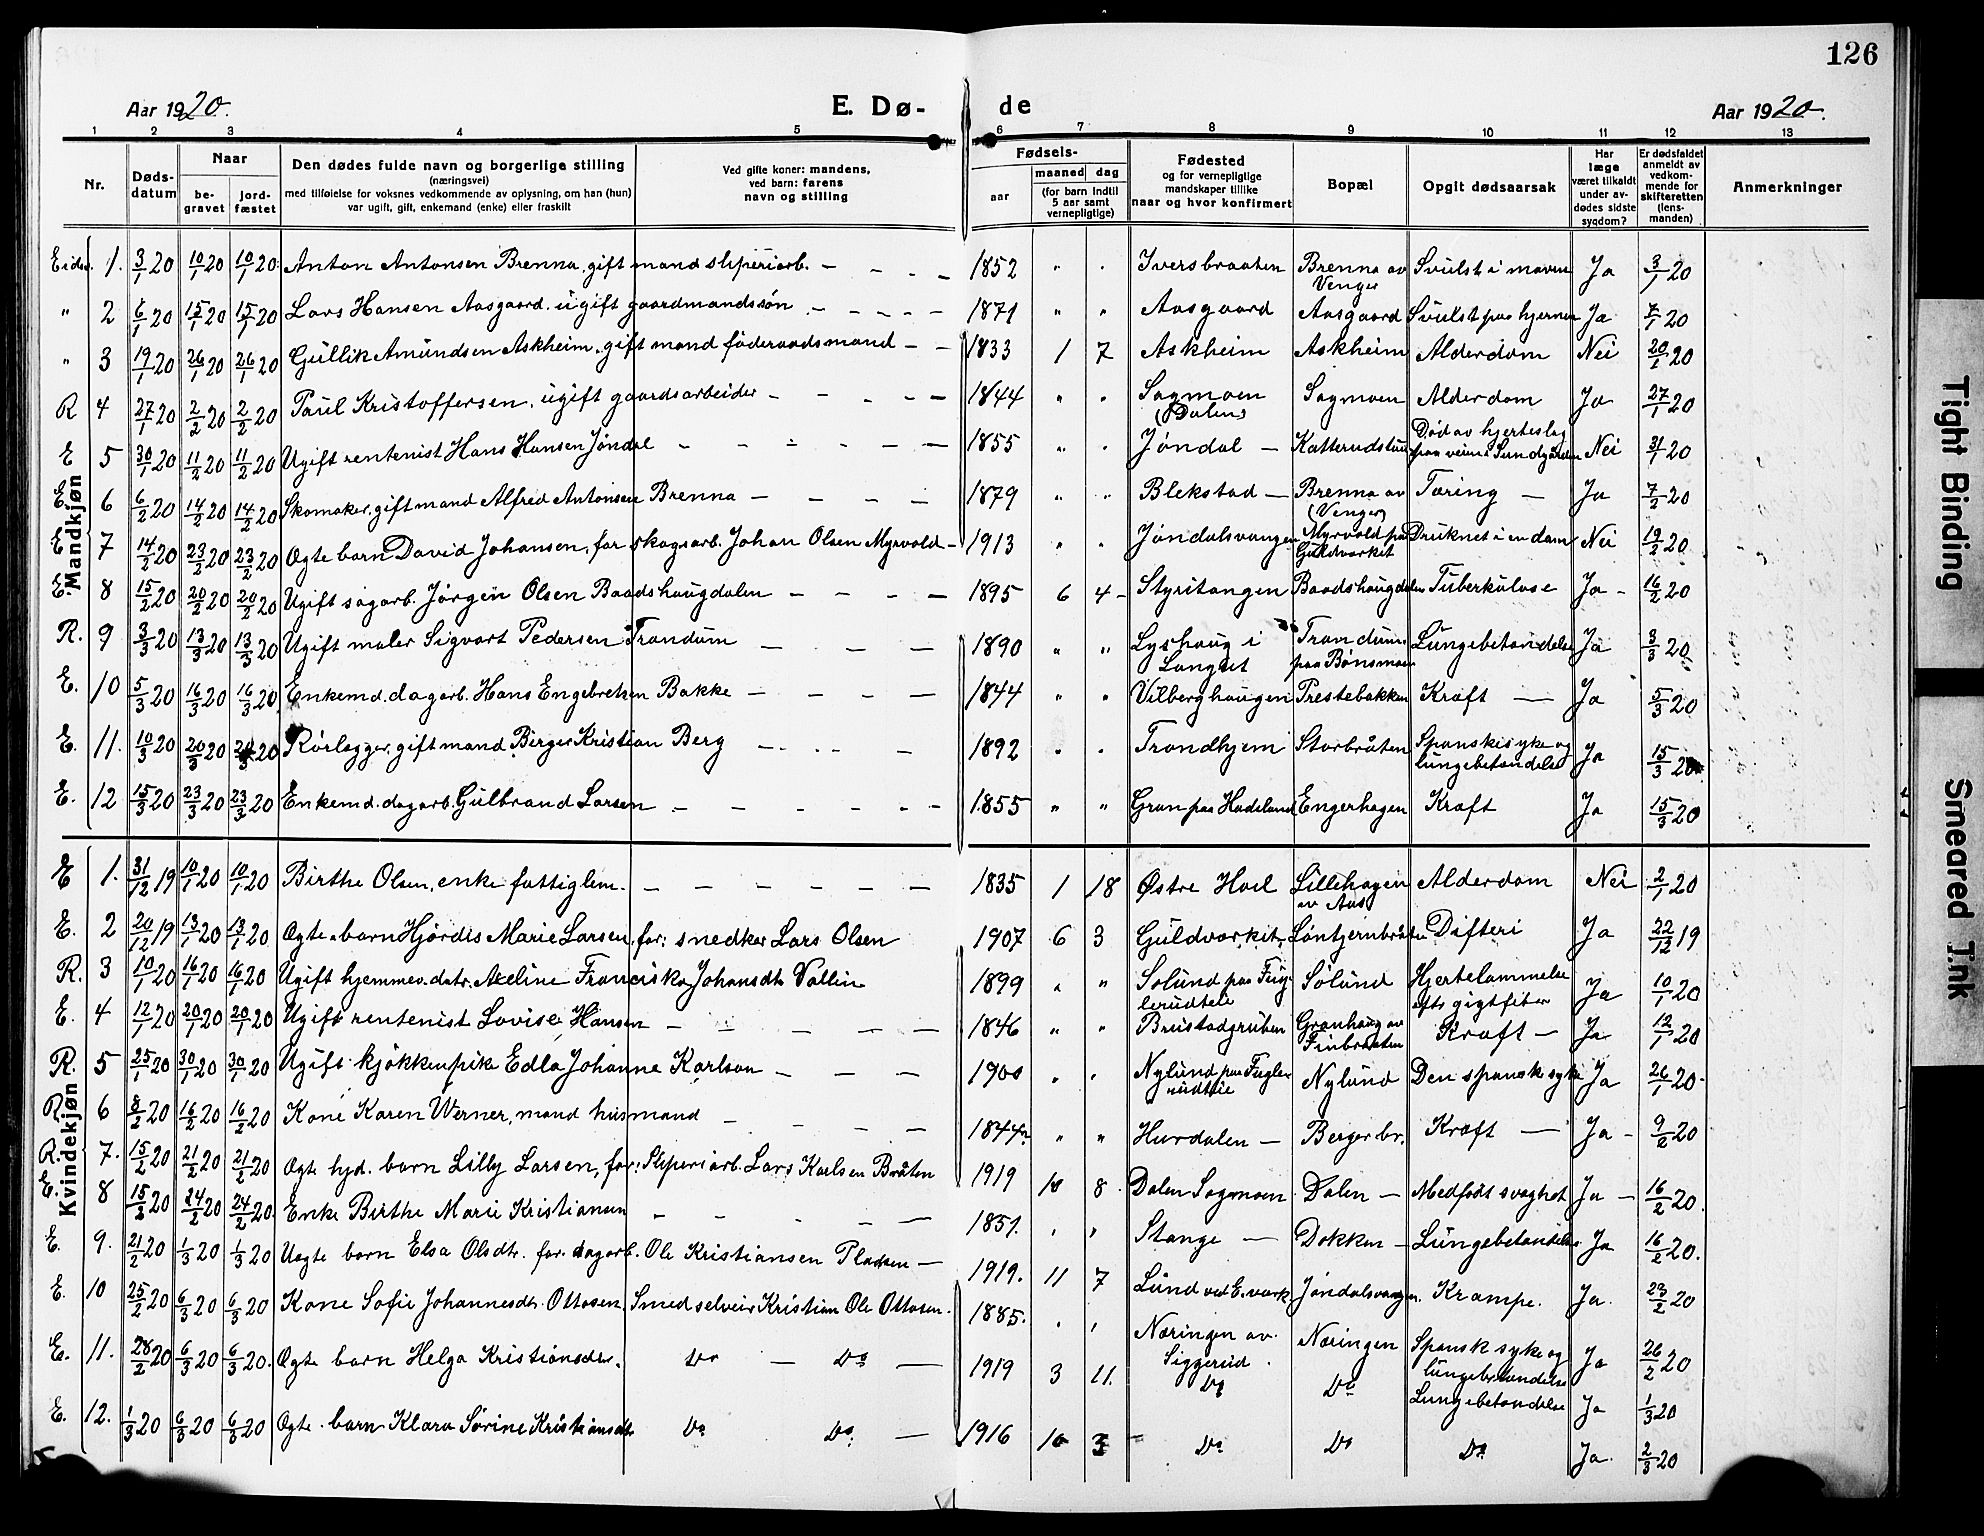 126
Aar 1920.
E. Dø-
de
Aar 1920.
1 2 3 4 5 6 7 8 9 10 11 12 13
Nr.
Døds-
datum
Naar
be-
gravet
jord-
fæstet
Den dødes fulde navn og borgerlige stilling
(næringsvei)
med tilføielse for voksnes vedkommende av oplysning, om han (hun)
var ugift, gift, enkemand (enke) eller fraskilt
Ved gifte koner: mandens,
ved barn: farens
navn og stilling
Fødsels-
aar
maaned dag
(for barn indtil
5 aar samt
vernepligtige)
Fødested
og for vernepligtige
mandskaper tillike
naar og hvor konfirmert
Bopæl
Opgit dødsaarsak
Har
læge
været tilkaldt
under av-
dødes sidste
sygdom?
Er dødsfaldet
anmeldt av
vedkom-
mende for
skifteretten
(lens-
manden)
Anmerkninger
Mandkjøn
Eidsv. 1. 3/1 20 10/1 20 10/1 20 Anton Antonsen Brenna, gift mand sliperiarb. - - - - 1852 " " Iversbraaten Brenna av Venger Svulst i maven Ja 3/1 20
" 2 6/1 20 15/1 20 15/1 20 Lars Hansen Aasgaard. ugift gaardmandssøn - - - - 1871 " " Aasgaard Aasgaard Svulst paa hjernen Ja 7/1 20
" 3 19/1 20 26/1 20 26/1 20 Gullik Amundsen Askheim, gift mand føderaadsmand - - 1833 1 7 Askheim Askheim Alderdom Nei 20/1 20
R 4 27/1 20 2/2 20 2/2 20 Paul Kristoffersen, ugift gaardsarbeider - - - - - 1844 " " Sagmoen (Dalen) Sagmoen Alderdom Ja 27/1 20
E 5 30/1 20 11/2 20 11/2 20 Ugift rentenist Hans Hansen Jøndal - - - - - - 1855 " " Jøndal - Katterudstuen Død av hjerteslag paa veien i Sundgården Nei 31/1 20
E 6 6/2 20 14/2 20 14/2 20 Skomaker, gift mand Alfred Antonsen Brenna - - - - 1879 " " Blekstad - Brenna av (Venger) Tæring - Ja 7/2 20
E 7 14/2 20 23/2 20 23/2 20 Ogte barn David Johansen, far skogsarb. Johan Olsen Myrvold - 1913 " " Jøndalsvangen Myrvold paa Guldverket Druknet i en dam Nei 19/2 20
E. 8 15/2 20 20/2 20 20/2 20 Ugift sagarb. Jørgen Olsen Baadshaugdalen - - - - 1895 6 4 - Styritangen Baadshaugdalen Tuberkulose Ja - 16/2 20
R. 9 3/3 20 13/3 20 13/3 20 Ugift maler Sigvart Pedersen Trandum - - - - 1890 " " Lyshaug i Langset Trandum paa Bønsmoen Lungebetændelse Ja 3/3 20
E. 10 5/3 20 16/3 20 16/3 20 Enkemd. dagarb. Hans Engebretsen Bakke - - - - 1844 " " Vilberghaugen Prestebakken Kræft - Ja 5/3 20
E. 11. 10/3 20 20/3 20 20/3 20 Rørlegger, gift mand Birger Kristian Berg - - - - 1892 " " Trondhjem Storbråten Spanskesyke og lungebetændelse Ja 15/3 20
E. 12 15/3 20 23/3 20 23/3 20 Enkemd. dagarb. Gulbrand Larsen - - - - - - 1855 " " Gran paa Hadeland Engerhagen Kræft Ja 15/3 20
Kvindekjøn
E 1. 31/12 19 10/1 20 10/1 20 Birthe Olsen, enke fattiglem. - - - - - - 1835 1 18 Østre Hoel Lillehagen av Aas Alderdom Nei 2/1 20
E. 2 20/12 19 13/1 20 13/1 20 Ogte barn Hjørdis Marie Larsen, far: snedker Lars Olsen 1907 6 3 Guldverket Løntjernbråten Difteri Ja 22/12 19
R. 3 10/1 20 16/1 20 16/1 20 Ugift hjemmev. datr. Axeline Franciska Johansdtr Vallin 1899 " " Solund paa Fuglerudteie Sølund Hjertelammelse efter gigtfeber Ja 10/1 20
E. 4 12/1 20 20/1 20 20/1 20 Ugift rentenist Lovise Hansen - - - - - 1846 " " Brustadgruben Granhaug av Finbraaten Kræft - Ja 12/1 20
R. 5 25/1 20 30/1 20 30/1 20 Ugift kjøkkenpike Edla Johanne Karlson - - - - 1900 " " Nylund paa Fuglerudteie Nylund Den spanske syke Ja 26/1 20
R 6 8/2 20 16/2 20 16/2 20 Kone Karen Werner, mand husmand - - - - 1844 " " Hurdalen - Berger br. Kræft - Ja - 9/2 20
R. 7. 15/2 20 21/2 20 21/2 20 Ogte hjd. barn Lilly Larsen, far: Sliperiarb. Lars Karlsen Bråten 1919 10 8 Dalen Sagmoen Dalen - Medfødt svaghet Ja - 16/2 20.
E. 8 15/2 20 24/2 20 24/2 20 Enke Birthe Marie Kristiansen - - - - - 1851. " " Stange - Dokken - Lungebetændelse Ja 16/2 20.
E. 9. 21/2 20 1/3 20 1/3 20 Uegte barn Elsa Olsdtr. far: dagarb. Ole Kristiansen Pladsen - 1919. 11 7 Lund ved E. verk Jøndalsvangen. Krampe. Ja. 23/2 20
E. 10 25/2 20 6/3 20 6/3 20 Kone Sofie Johannesdtr. Ottosen, Smed selveier Kristian Ole Ottosen. 1885. " " Næringen av Siggerud. Næringen Spansk syke og lungebetændelse Ja 26/2 20
E. 11. 28/2 20 6/3 20 6/3 20. Ogte barn Helga Kristiansdtr. Do - Do - 1919 3 11. Do Do Lungebetændelse Ja 1/3 20
E. 12. 1/3 20 6/3 20 6/3 20 Ogte barn Klara Sørine Kristiansdtr Do Do. - 1916 10 3 - Do Do Do Ja. 2/3 20
Tight Binding
Smeared Ink